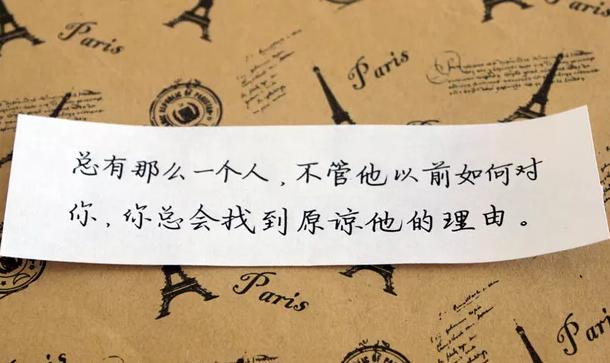 Paris
Paris
总有那么一个人,不管他以前如何对
你,你总会找到原谅他的理由。
Paris
Paris